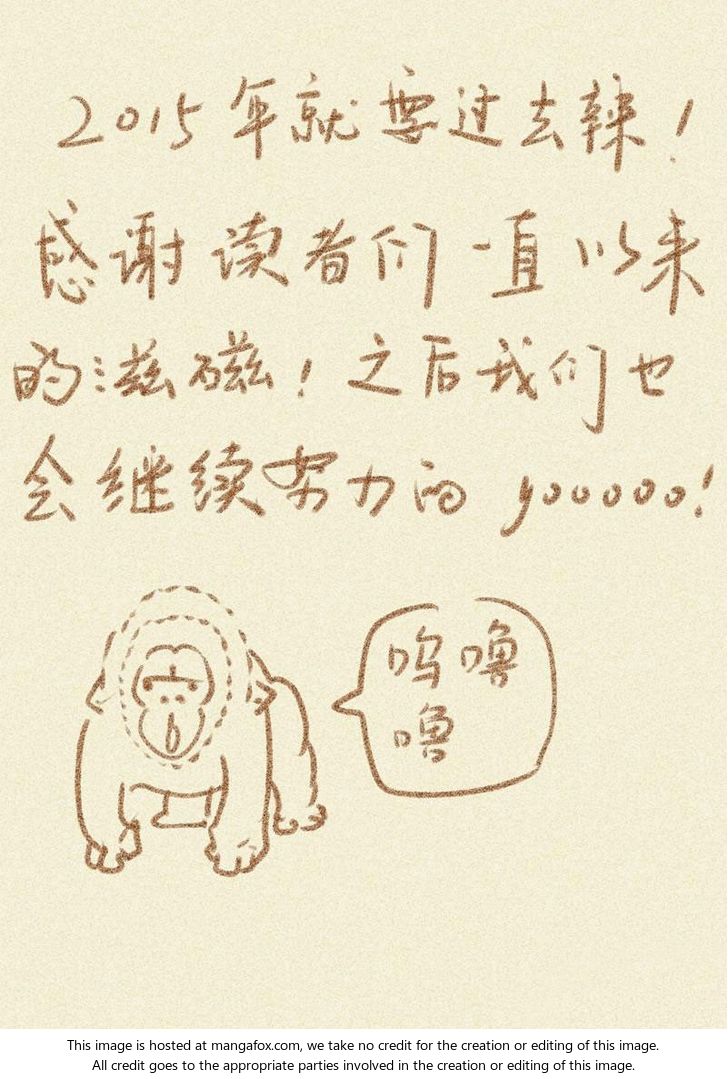 2015年就要过去辣！
感谢读者们一直以来
的滋磁！之后我们也
会继续努力的 yooooo!
呜噜
噜
This image is hosted at mangafox.com, we take no credit for the creation or editing of this image.
All credit goes to the appropriate parties involved in the creation or editing of this image.